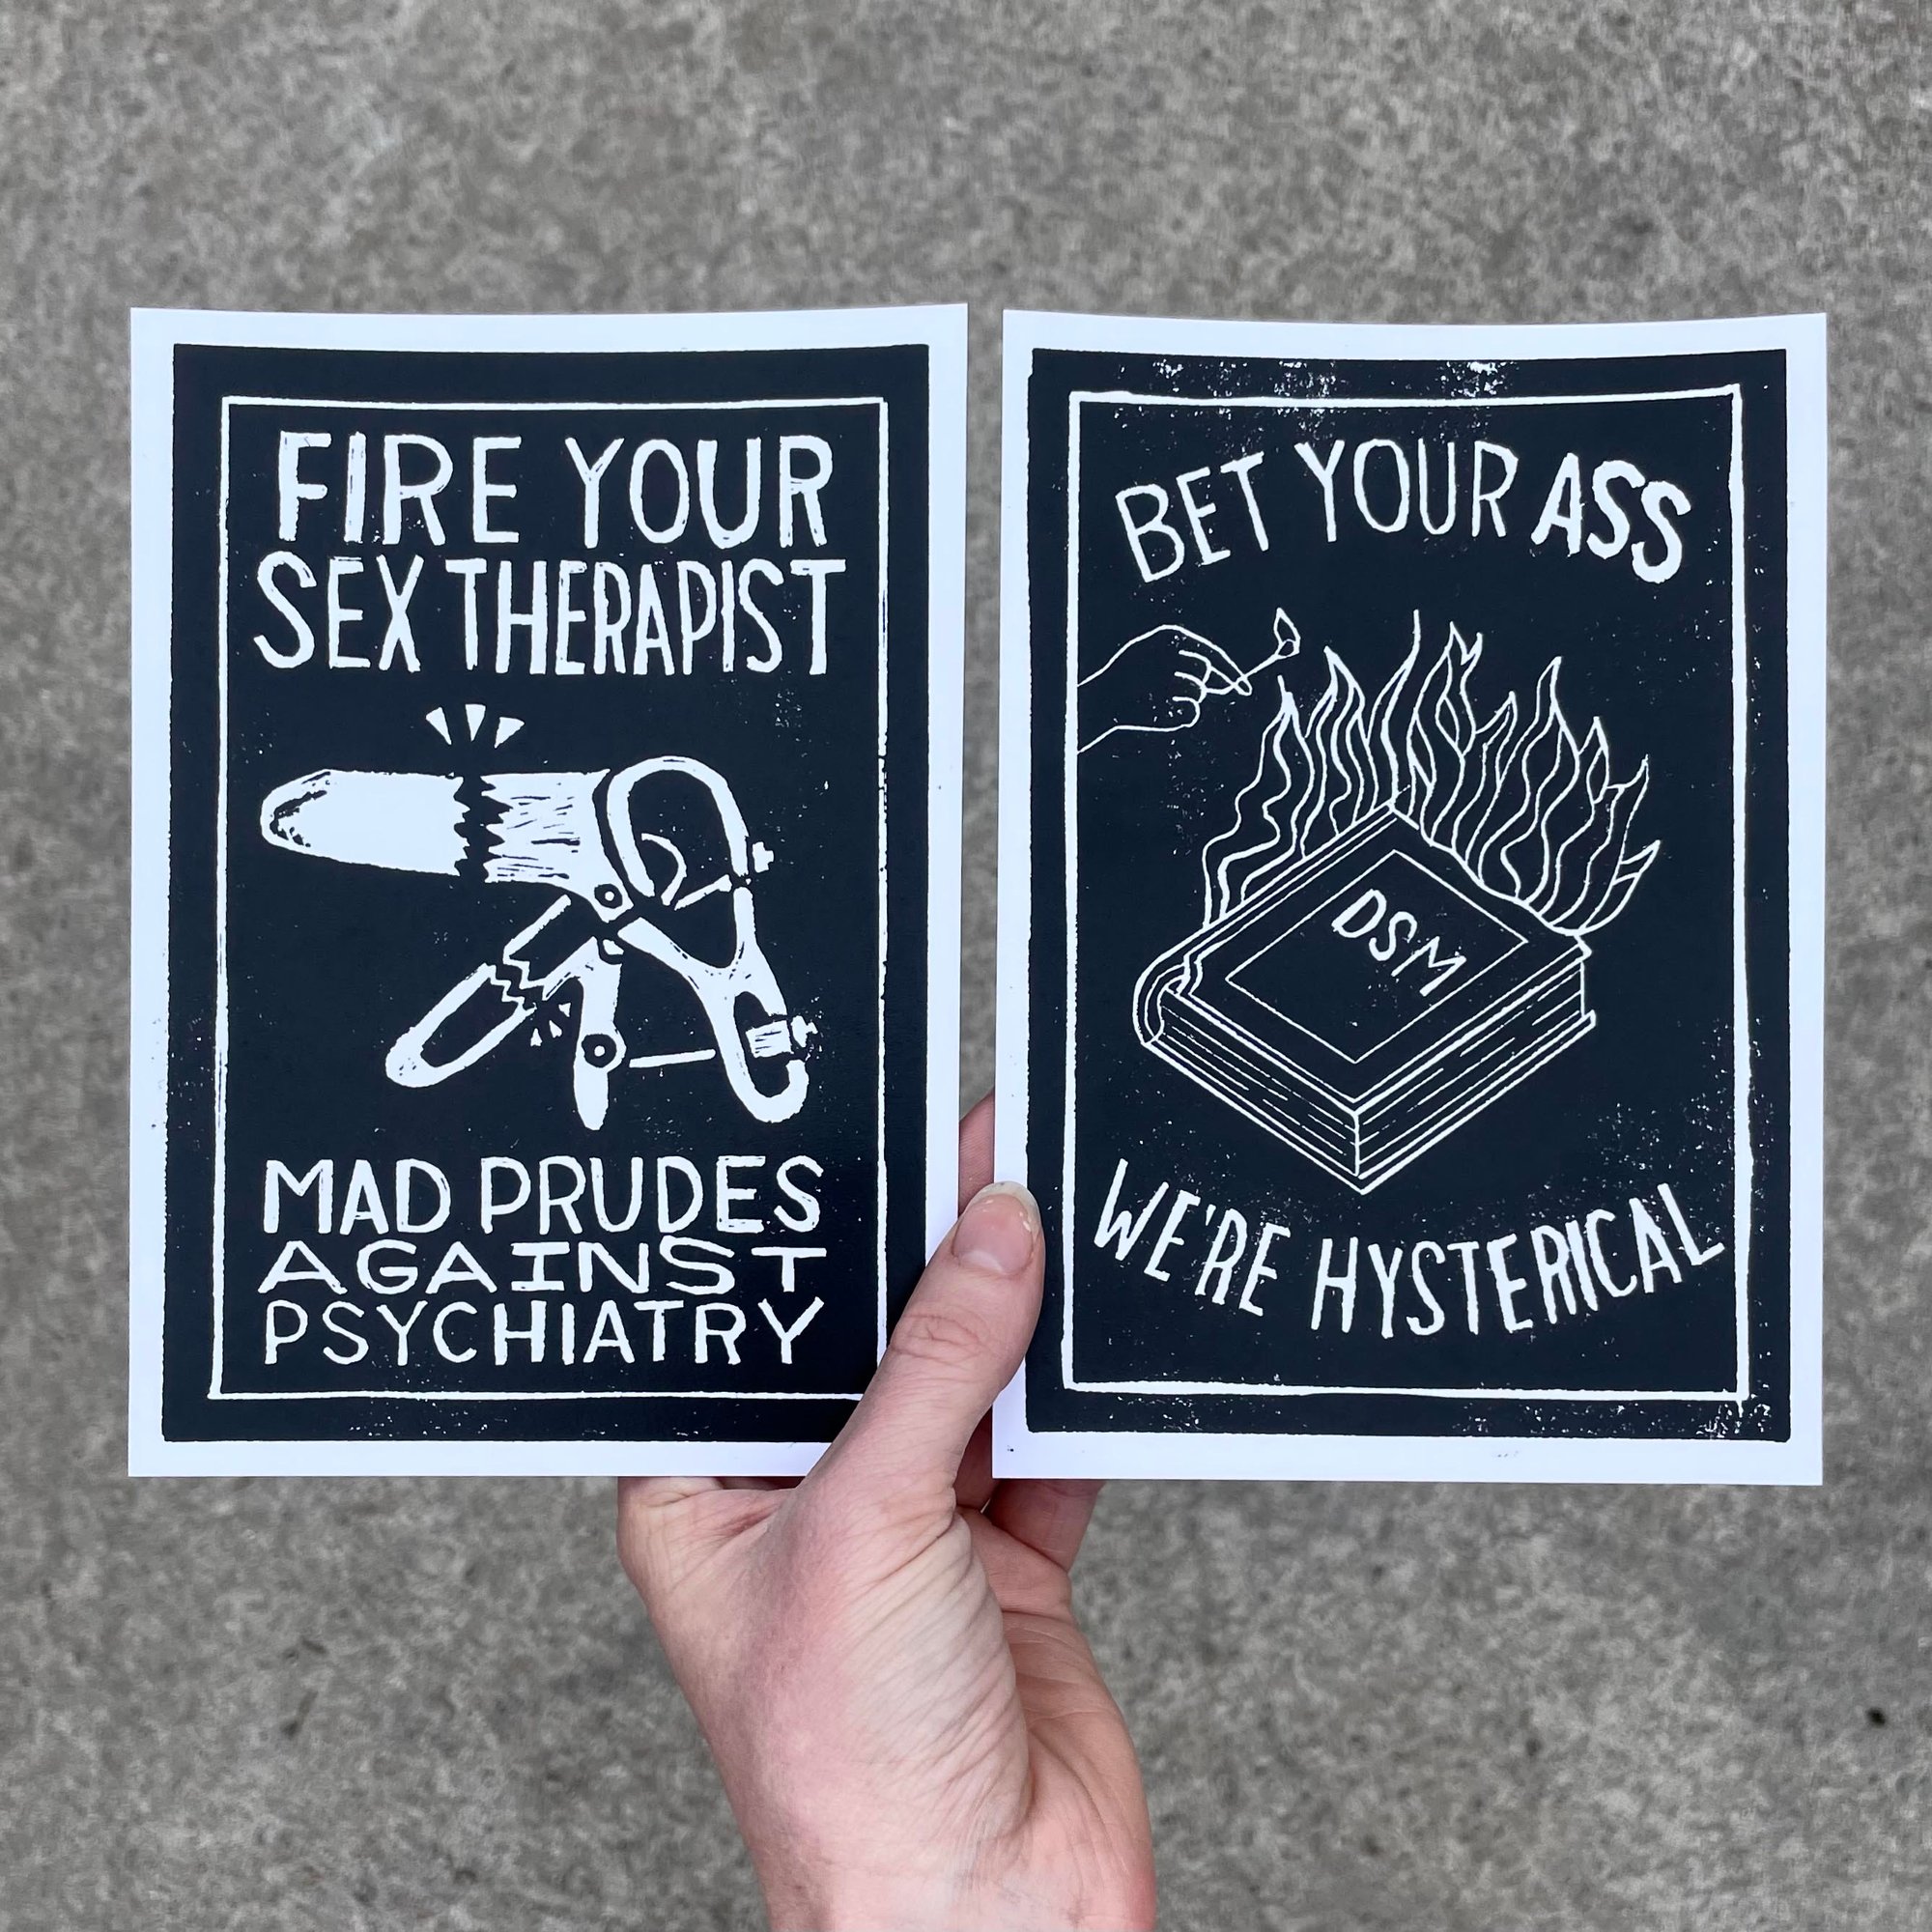 FIRE YOUR
SEX THERAPIST
MAD PRUDES
AGAINST
PSYCHIATRY
BET YOUR ASS
DSM
WE'RE HYSTERICAL